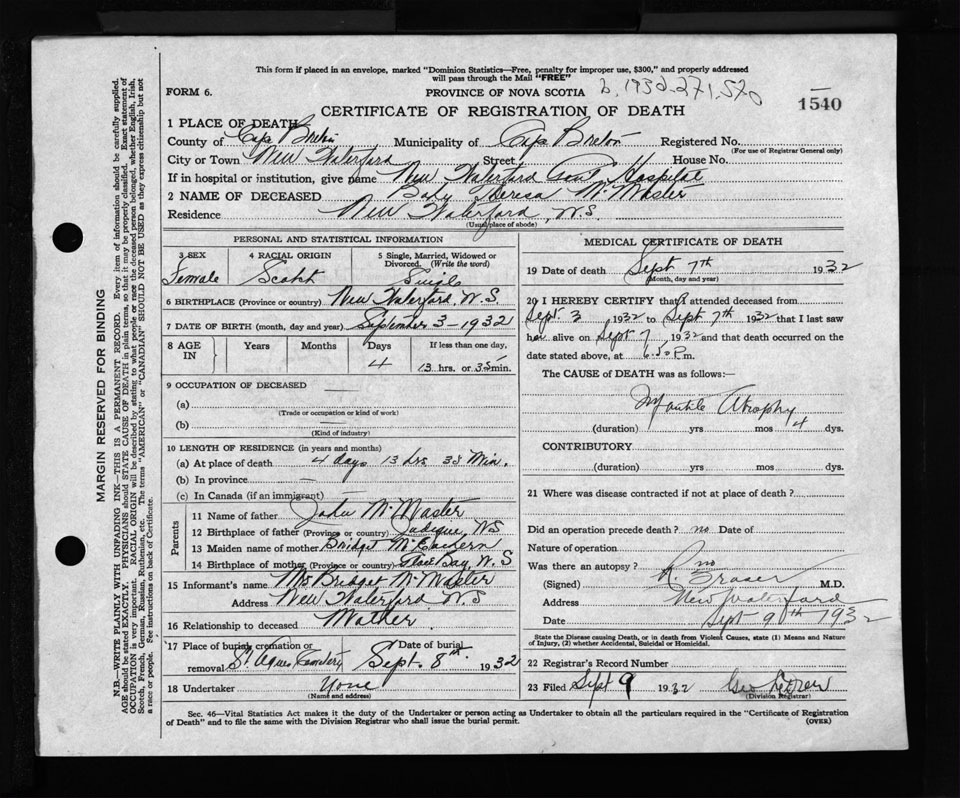 This form if placed in an envelope, marked "Dominion Statistics—Free, penalty for improper use, $300," and properly addressed
will pass through the Mail "FREE"
FORM 6. PROVINCE OF NOVA SCOTIA
b, 1932-271,570
1540
CERTIFICATE OF REGISTRATION OF DEATH
1 PLACE OF DEATH
County of Cape Breton Municipality of Cape Breton Registered No.
(For use of Registrar General only)
City or Town New Waterford Street House No.
If in hospital or institution, give name New Waterford Genl Hospital
2 NAME OF DECEASED Baby Theresa McMaster
Residence New Waterford, N.S.
(Usual place of abode)
PERSONAL AND STATISTICAL INFORMATION
3 SEX 4 RACIAL ORIGIN 5 Single, Married, Widowed or
Divorced. (Write the word)
Female Scotch Single
6 BIRTHPLACE (Province or country) New Waterford, N.S.
7 DATE OF BIRTH (month, day and year) September 3-1932
8 AGE IN Years Months Days If less than one day,
4 13 hrs. or 35 min.
9 OCCUPATION OF DECEASED —
(a)
(Trade or occupation or kind of work)
(b) —
(Kind of industry)
10 LENGTH OF RESIDENCE (in years and months)
(a) At place of death 4 days 13 hrs. 35 Min.
(b) In province
(c) In Canada (if an immigrant)
Parents
11 Name of father John McMaster
12 Birthplace of father (Province or country) Judique NS
13 Maiden name of mother Bridget McEachern
14 Birthplace of mother (Province or country) Glace Bay, N.S
15 Informant's name Mrs Bridget McMaster
Address New Waterford N.S
16 Relationship to deceased Mother
17 Place of burial, cremation or Date of burial
removal St. Agnes Cemetery Sept. 8th. 1932
18 Undertaker None
(Name and address)
MEDICAL CERTIFICATE OF DEATH
19 Date of death Sept 7th 1932
(Month, day and year)
20 I HEREBY CERTIFY that I attended deceased from
Sept 3 1932 to Sept 7th 1932 that I last saw
her alive on Sept 7 1932 and that death occurred on the
date stated above, at 6.50 P.m.
The CAUSE of DEATH was as follows:—
Infantile Atrophy
(duration) yrs mos 4 dys.
CONTRIBUTORY
(duration) yrs mos dys.
21 Where was disease contracted if not at place of death?
Did an operation precede death? no Date of
Nature of operation
Was there an autopsy? no
(Signed) R. Fraser M.D.
Address New Waterford
Date Sept 9th 1932
State the Disease causing Death, or in death from Violent Causes, state (1) Means and Nature
of Injury, (2) whether Accidental, Suicidal or Homicidal.
22 Registrar's Record Number
23 Filed Sept 9 1932 Geo
(Division Registrar)
Sec. 46—Vital Statistics Act makes it the duty of the Undertaker or person acting as Undertaker to obtain all the particulars required in the "Certificate of Registration
of Death" and to file the same with the Division Registrar who shall issue the burial permit. (OVER)
MARGIN RESERVED FOR BINDING
N.B.—WRITE PLAINLY WITH UNFADING INK—THIS IS A PERMANENT RECORD. Every item of information should be carefully supplied.
AGE should be stated EXACTLY. PHYSICIANS should STATE CAUSE OF DEATH in plain terms, so that it may be properly classified. Exact statement of
OCCUPATION is very important. RACIAL ORIGIN will be described by stating to what people or race the deceased person belonged, whether English, Irish,
Scotch, French, German, Russian, Ruthenian, etc. The terms "AMERICAN" or "CANADIAN" SHOULD NOT BE USED as they express citizenship but not
a race or people. See instructions on back of Certificate.